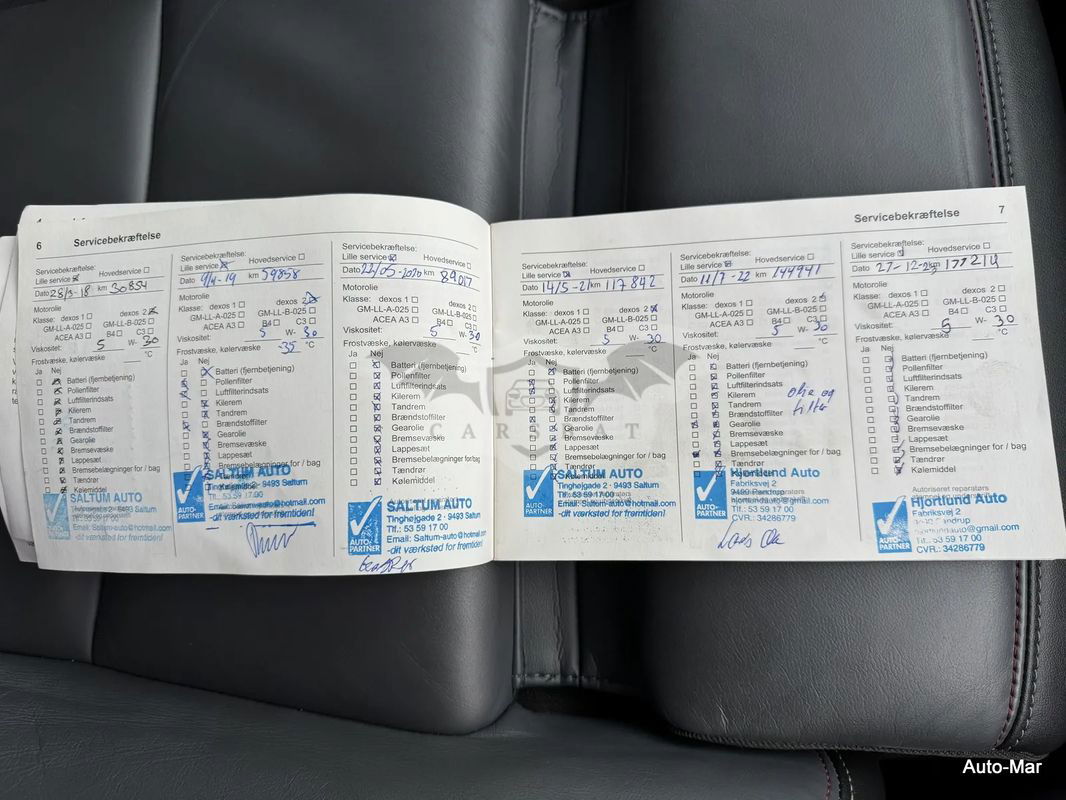 6 Servicebekræftelse
Servicebekræftelse:
Lille service Hovedservice
Dato 28/3-18 km 30854
Motorolie
Klasse: dexos 1 dexos 2
GM-LL-A-025 GM-LL-B-025
ACEA A3 B4 C3
Viskositet: 5 W- 30
Frostvæske, kølervæske °C
Ja Nej
Batteri (fjernbetjening)
Pollenfilter
Luftfilterindsats
Kilerem
Tandrem
Brændstoffilter
Gearolie
Bremsevæske
Lappesæt
Bremsebelægninger for / bag
Tændrør
Kølemiddel
SALTUM AUTO
Tinghøjgade 2 · 9493 Saltum
Tlf.: 53 59 17 00
Email: Saltum-auto@hotmail.com
-dit værksted for fremtiden!
AUTO-
PARTNER
Servicebekræftelse:
Lille service Hovedservice
Dato 9/4-19 km 59858
Motorolie
Klasse: dexos 1 dexos 2
GM-LL-A-025 GM-LL-B-025
ACEA A3 B4 C3
Viskositet: 5 W- 30
Frostvæske, kølervæske -35 °C
Ja Nej
Batteri (fjernbetjening)
Pollenfilter
Luftfilterindsats
Kilerem
Tandrem
Brændstoffilter
Gearolie
Bremsevæske
Lappesæt
Bremsebelægninger for / bag
Tændrør
Kølemiddel
SALTUM AUTO
Tinghøjgade 2 · 9493 Saltum
Tlf.: 53 59 17 00
Email: Saltum-auto@hotmail.com
-dit værksted for fremtiden!
AUTO-
PARTNER
Servicebekræftelse:
Lille service Hovedservice
Dato 22/05-2020 km 89017
Motorolie
Klasse: dexos 1 dexos 2
GM-LL-A-025 GM-LL-B-025
ACEA A3 B4 C3
Viskositet: 5 W- 30
Frostvæske, kølervæske °C
Ja Nej
Batteri (fjernbetjening)
Pollenfilter
Luftfilterindsats
Kilerem
Tandrem
Brændstoffilter
Gearolie
Bremsevæske
Lappesæt
Bremsebelægninger for/bag
Tændrør
Kølemiddel
SALTUM AUTO
Tinghøjgade 2 · 9493 Saltum
Tlf.: 53 59 17 00
Email: Saltum-auto@hotmail.com
-dit værksted for fremtiden!
AUTO-
PARTNER
Servicebekræftelse 7
Servicebekræftelse:
Lille service Hovedservice
Dato 14/5-21 km 117842
Motorolie
Klasse: dexos 1 dexos 2
GM-LL-A-025 GM-LL-B-025
ACEA A3 B4 C3
Viskositet: 5 W- 30
Frostvæske, kølervæske °C
Ja Nej
Batteri (fjernbetjening)
Pollenfilter
Luftfilterindsats
Kilerem
Tandrem
Brændstoffilter
Gearolie
Bremsevæske
Lappesæt
Bremsebelægninger for / bag
Tændrør
Kølemiddel
SALTUM AUTO
Tinghøjgade 2 · 9493 Saltum
Tlf.: 53 59 17 00
Email: Saltum-auto@hotmail.com
-dit værksted for fremtiden!
AUTO-
PARTNER
Servicebekræftelse:
Lille service Hovedservice
Dato 11/7-22 km 144941
Motorolie
Klasse: dexos 1 dexos 2
GM-LL-A-025 GM-LL-B-025
ACEA A3 B4 C3
Viskositet: 5 W- 30
Frostvæske, kølervæske °C
Ja Nej
Batteri (fjernbetjening)
Pollenfilter
Luftfilterindsats
Kilerem
Tandrem
Brændstoffilter
Gearolie
Bremsevæske
Lappesæt
Bremsebelægninger for / bag
Tændrør
Kølemiddel
olie og
filter
Hjortlund Auto
Fabriksvej 2
9490 Pandrup
hjortlundauto@gmail.com
Tlf.: 53 59 17 00
CVR.: 34286779
AUTO-
PARTNER
Servicebekræftelse:
Lille service Hovedservice
Dato 27-12-23 km 177214
Motorolie
Klasse: dexos 1 dexos 2
GM-LL-A-025 GM-LL-B-025
ACEA A3 B4 C3
Viskositet: 5 W- 30
Frostvæske, kølervæske °C
Ja Nej
Batteri (fjernbetjening)
Pollenfilter
Luftfilterindsats
Kilerem
Tandrem
Brændstoffilter
Gearolie
Bremsevæske
Lappesæt
Bremsebelægninger for / bag
Tændrør
Kølemiddel
Autoriseret reparatørs
Hjortlund Auto
Fabriksvej 2
9490 Pandrup
hjortlundauto@gmail.com
Tlf.: 53 59 17 00
CVR.: 34286779
AUTO-
PARTNER
CARSBAT
Auto-Mar